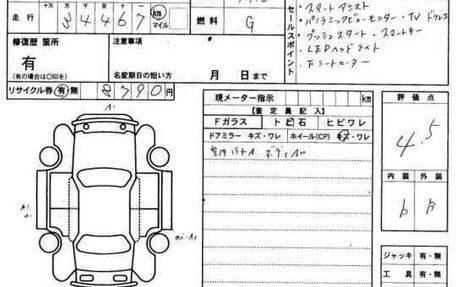 走行 十万 万 千 百 十 一 34467 km マイル
燃料 G
セールスポイント
・スマートアシスト
・パノラミックビューモニター・TV
・プッシュスタート・スマートキー
・LEDヘッドライト
・シートヒーター
修復歴 箇所
有
(有の場合は○印を)
注意事項
名変期日の短い方 月 日まで
リサイクル券 有・無 8790円
現メーター指示 km
【査定員記入】
Fガラス トビ石 ヒビワレ
ドアミラー キズ・ワレ ホイール(CP) キズ・ワレ
評価点
4.5
内装 外装
b B
A1
A1
A1
ジャッキ 有・無
工具 有・無